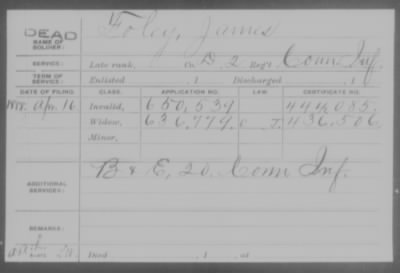 DEAD
NAME OF SOLDIER: Foley, James
SERVICE: Late rank, Co. D, 2 Reg't Conn Inf.
TERM OF SERVICE: Enlisted , 1 Discharged , 1
DATE OF FILING. CLASS. APPLICATION NO. LAW. CERTIFICATE NO.
Apr. 16 Invalid, 650,539 444,085,
Widow, 636,779 436,506
Minor,
ADDITIONAL SERVICES: B & E, 20, Conn Inf.
REMARKS:
Died , 1 , at